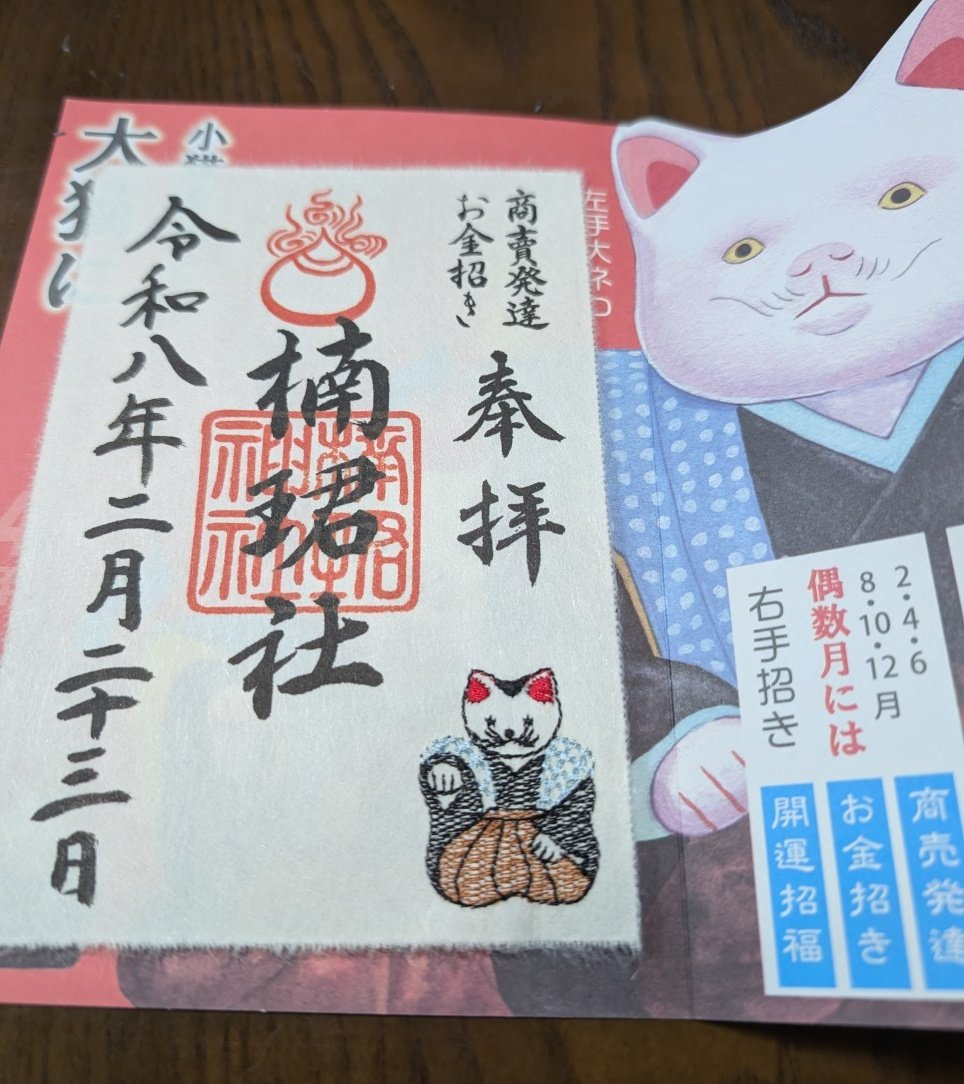 商賣発達
お金招き
奉拝
楠珺社
令和八年二月二十三日
小猫
大猫は
左手大ネコ
2・4・6
8・10・12月
偶数月には
右手招き
商売発達
お金招き
開運招福